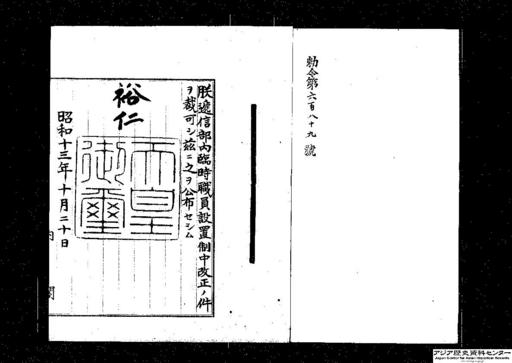 勅令第六百八十九號
朕遞信部內臨時職員設置制中改正ノ件
ヲ裁可シ茲ニ之ヲ公布セシム
裕仁
天皇御璽
昭和十三年十月二十日
內閣
アジア歴史資料センター
Japan Center for Asian Historical Records